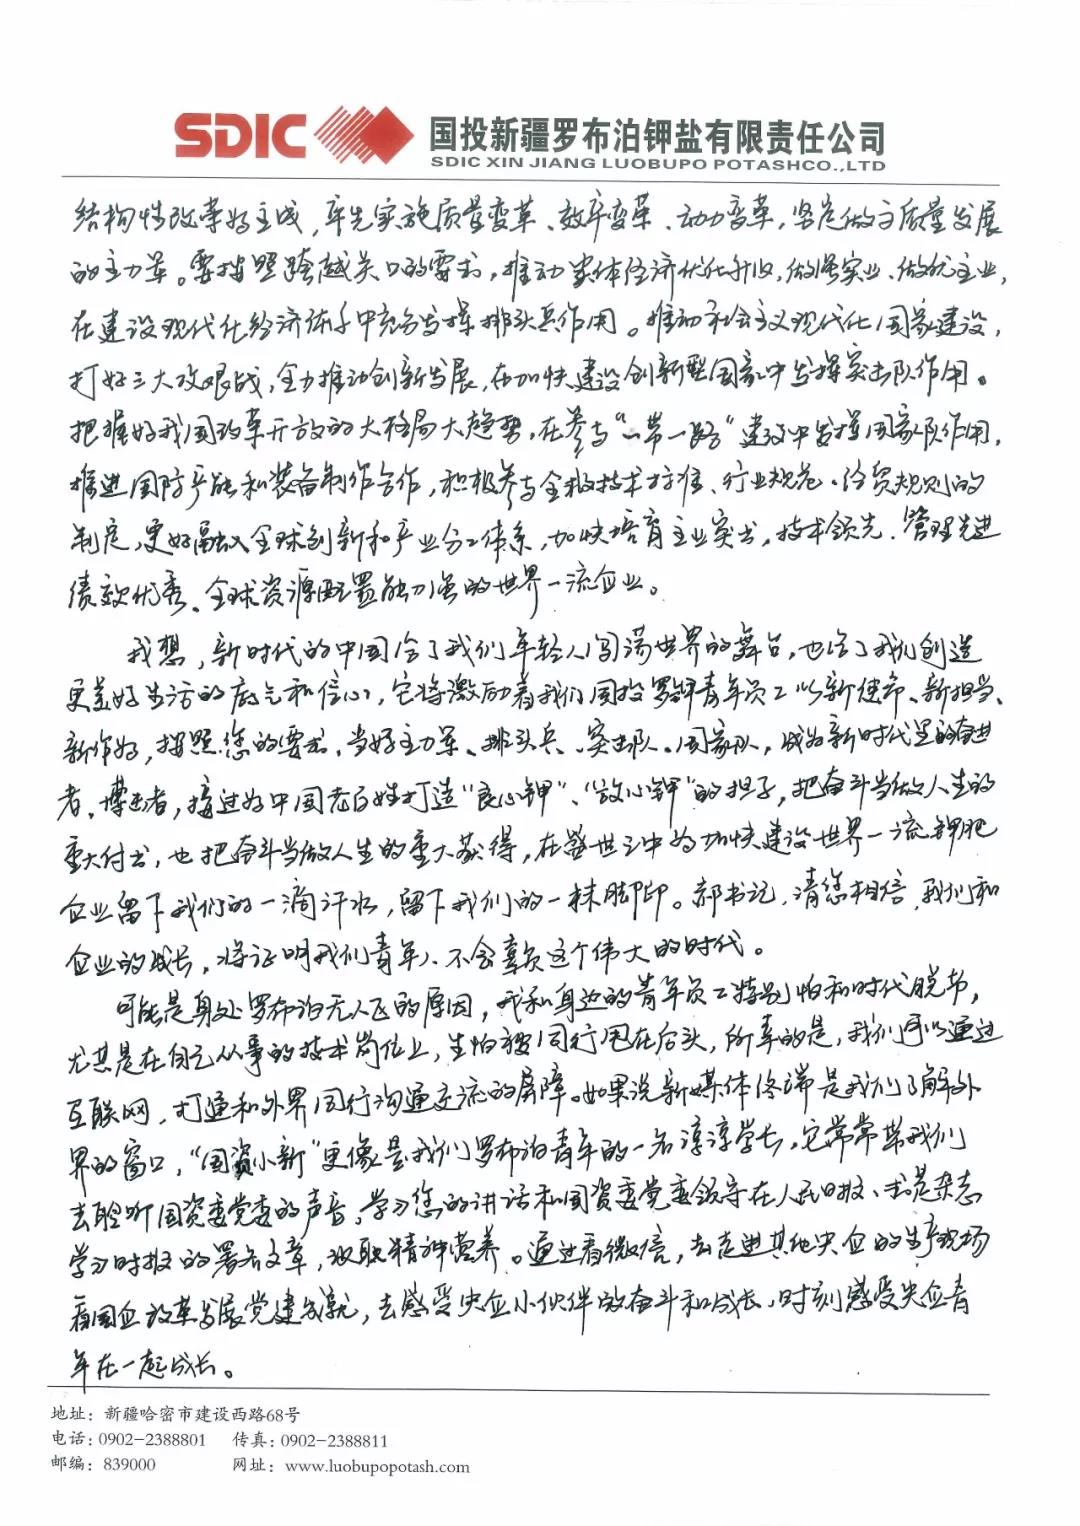 SDIC 国投新疆罗布泊钾盐有限责任公司
SDIC XIN JIANG LUOBUPO POTASHCO.,LTD
结构性改革好主成，率先实施质量变革、效率变革、动力变革，坚定做高质量发展
的主力军。要按照跨越关口的要求，推动实体经济优化升级，做强实业、做优主业，
在建设现代化经济体系中充分发挥排头兵作用。推动社会主义现代化国家建设，
打好三大攻艰战，全力推动创新发展，在加快建设创新型国家中发挥突击队作用。
把握好我国改革开放的大格局大趋势，在参与“一带一路”建设中发挥国家队作用，
推进国际产能和装备制作合作，积极参与全球技术标准、行业规范、经贸规则的
制定，更好融入全球创新和产业分工体系，加快培育主业突出，技术领先、管理先进
绩效优秀、全球资源配置能力强的世界一流企业。
我想，新时代的中国给了我们年轻人闯荡世界的舞台，也给了我们创造
更美好生活的底气和信心，它将激励着我们国投罗钾青年员工以新使命、新担当、
新作为，按照您的要求，当好主力军、排头兵、突击队、国家队，成为新时代里的奋进
者，搏击者，接过好中国老百姓打造“良心钾”、“放心钾”的担子，把奋斗当做人生的
重大付出，也把奋斗当做人生的重大获得，在盛世之中为加快建设世界一流钾肥
企业留下我们的一滴汗水，留下我们的一抹脚印。郝书记，请您相信，我们和
企业的成长，将证明我们青年人不会辜负这个伟大的时代。
可能是身处罗布泊无人区的原因，我和身边的青年员工特别怕和时代脱节，
尤其是在自己从事的技术岗位上，生怕被同行甩在后头，所幸的是，我们可以通过
互联网，打通和外界同行沟通交流的屏障。如果说新媒体终端是我们了解外
界的窗口，“国资小新”更像是我们罗布泊青年的一名谆谆学长，它常常带我们
去聆听国资委党委的声音，学习您的讲话和国资委党委领导在人民日报、求是杂志
学习时报的署名文章，汲取精神营养。通过看微信，去走进其他央企的生产现场
看国企改革发展党建成就，去感受央企小伙伴的奋斗和成长，时刻感受央企青
年在一起成长。
地址：新疆哈密市建设西路68号
电话：0902-2388801 传真：0902-2388811
邮编：839000 网址：www.luobupopotash.com